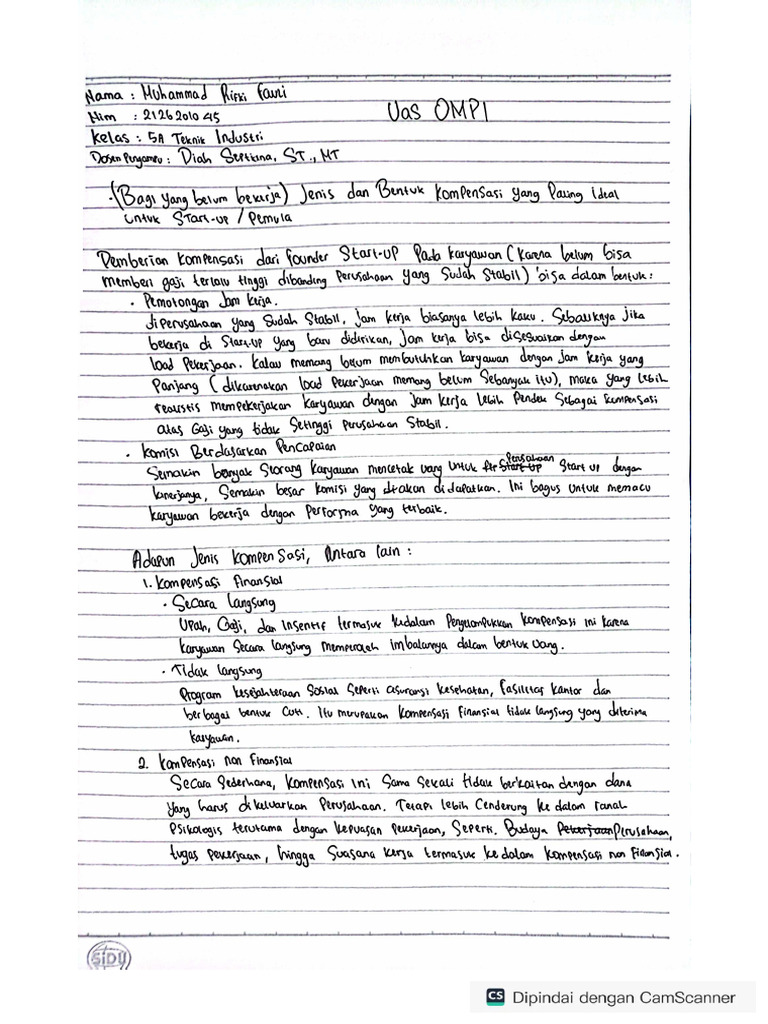 Nama : Muhammad Rifki Fauzi
UAS OMPI
Nim : 2126201045
Kelas : 5A Teknik Industri
Dosen Pengampu : Diah Septiana, ST., MT
- (Bagi yang belum bekerja) Jenis dan Bentuk Kompensasi yang Paling Ideal
untuk Start-up / Pemula
Pemberian Kompensasi dari founder Start-up Pada karyawan (karena belum bisa
memberi gaji terlalu tinggi dibanding Perusahaan yang Sudah Stabil) bisa dalam bentuk :
• Pemotongan Jam Kerja.
diperusahaan yang Sudah Stabil, Jam kerja biasanya lebih kaku. Sebaliknya jika
bekerja di Start-up yang baru didirikan, Jam kerja bisa disesuaikan dengan
load Pekerjaan. Kalau memang belum membutuhkan karyawan dengan jam kerja yang
Panjang (dikarenakan load Pekerjaan memang belum Sebanyak itu), maka yang lebih
realistis mempekerjakan karyawan dengan Jam kerja lebih Pendek Sebagai kompensasi
atas Gaji yang tidak Setinggi Perusahaan Stabil.
• Komisi Berdasarkan Pencapaian
Semakin banyak Seorang karyawan mencetak uang untuk Perusahaan Start up dengan
kinerjanya, Semakin besar komisi yang akan didapatkan. Ini bagus untuk memacu
karyawan bekerja dengan Performa yang terbaik.
Adapun Jenis Kompensasi, Antara lain :
1. Kompensasi Finansial
• Secara Langsung
Upah, Gaji, dan Insentif termasuk kedalam Pengelompokkan kompensasi ini karena
karyawan Secara langsung memperoleh imbalannya dalam bentuk uang.
• Tidak langsung
Program kesejahteraan Sosial Seperti asuransi kesehatan, Fasilitas kantor dan
berbagai bentuk Cuti. Itu merupakan kompensasi Finansial tidak langsung yang diterima
karyawan.
2. Kompensasi non Finansial
Secara Sederhana, kompensasi ini Sama Sekali tidak berkaitan dengan dana
yang harus dikeluarkan Perusahaan. Tetapi lebih Cenderung ke dalam ranah
Psikologis terutama dengan kepuasan pekerjaan, Seperti. Budaya Pekerjaan Perusahaan,
tugas pekerjaan, hingga Suasana kerja termasuk ke dalam kompensasi non Finansial.
SIDU
CS Dipindai dengan CamScanner